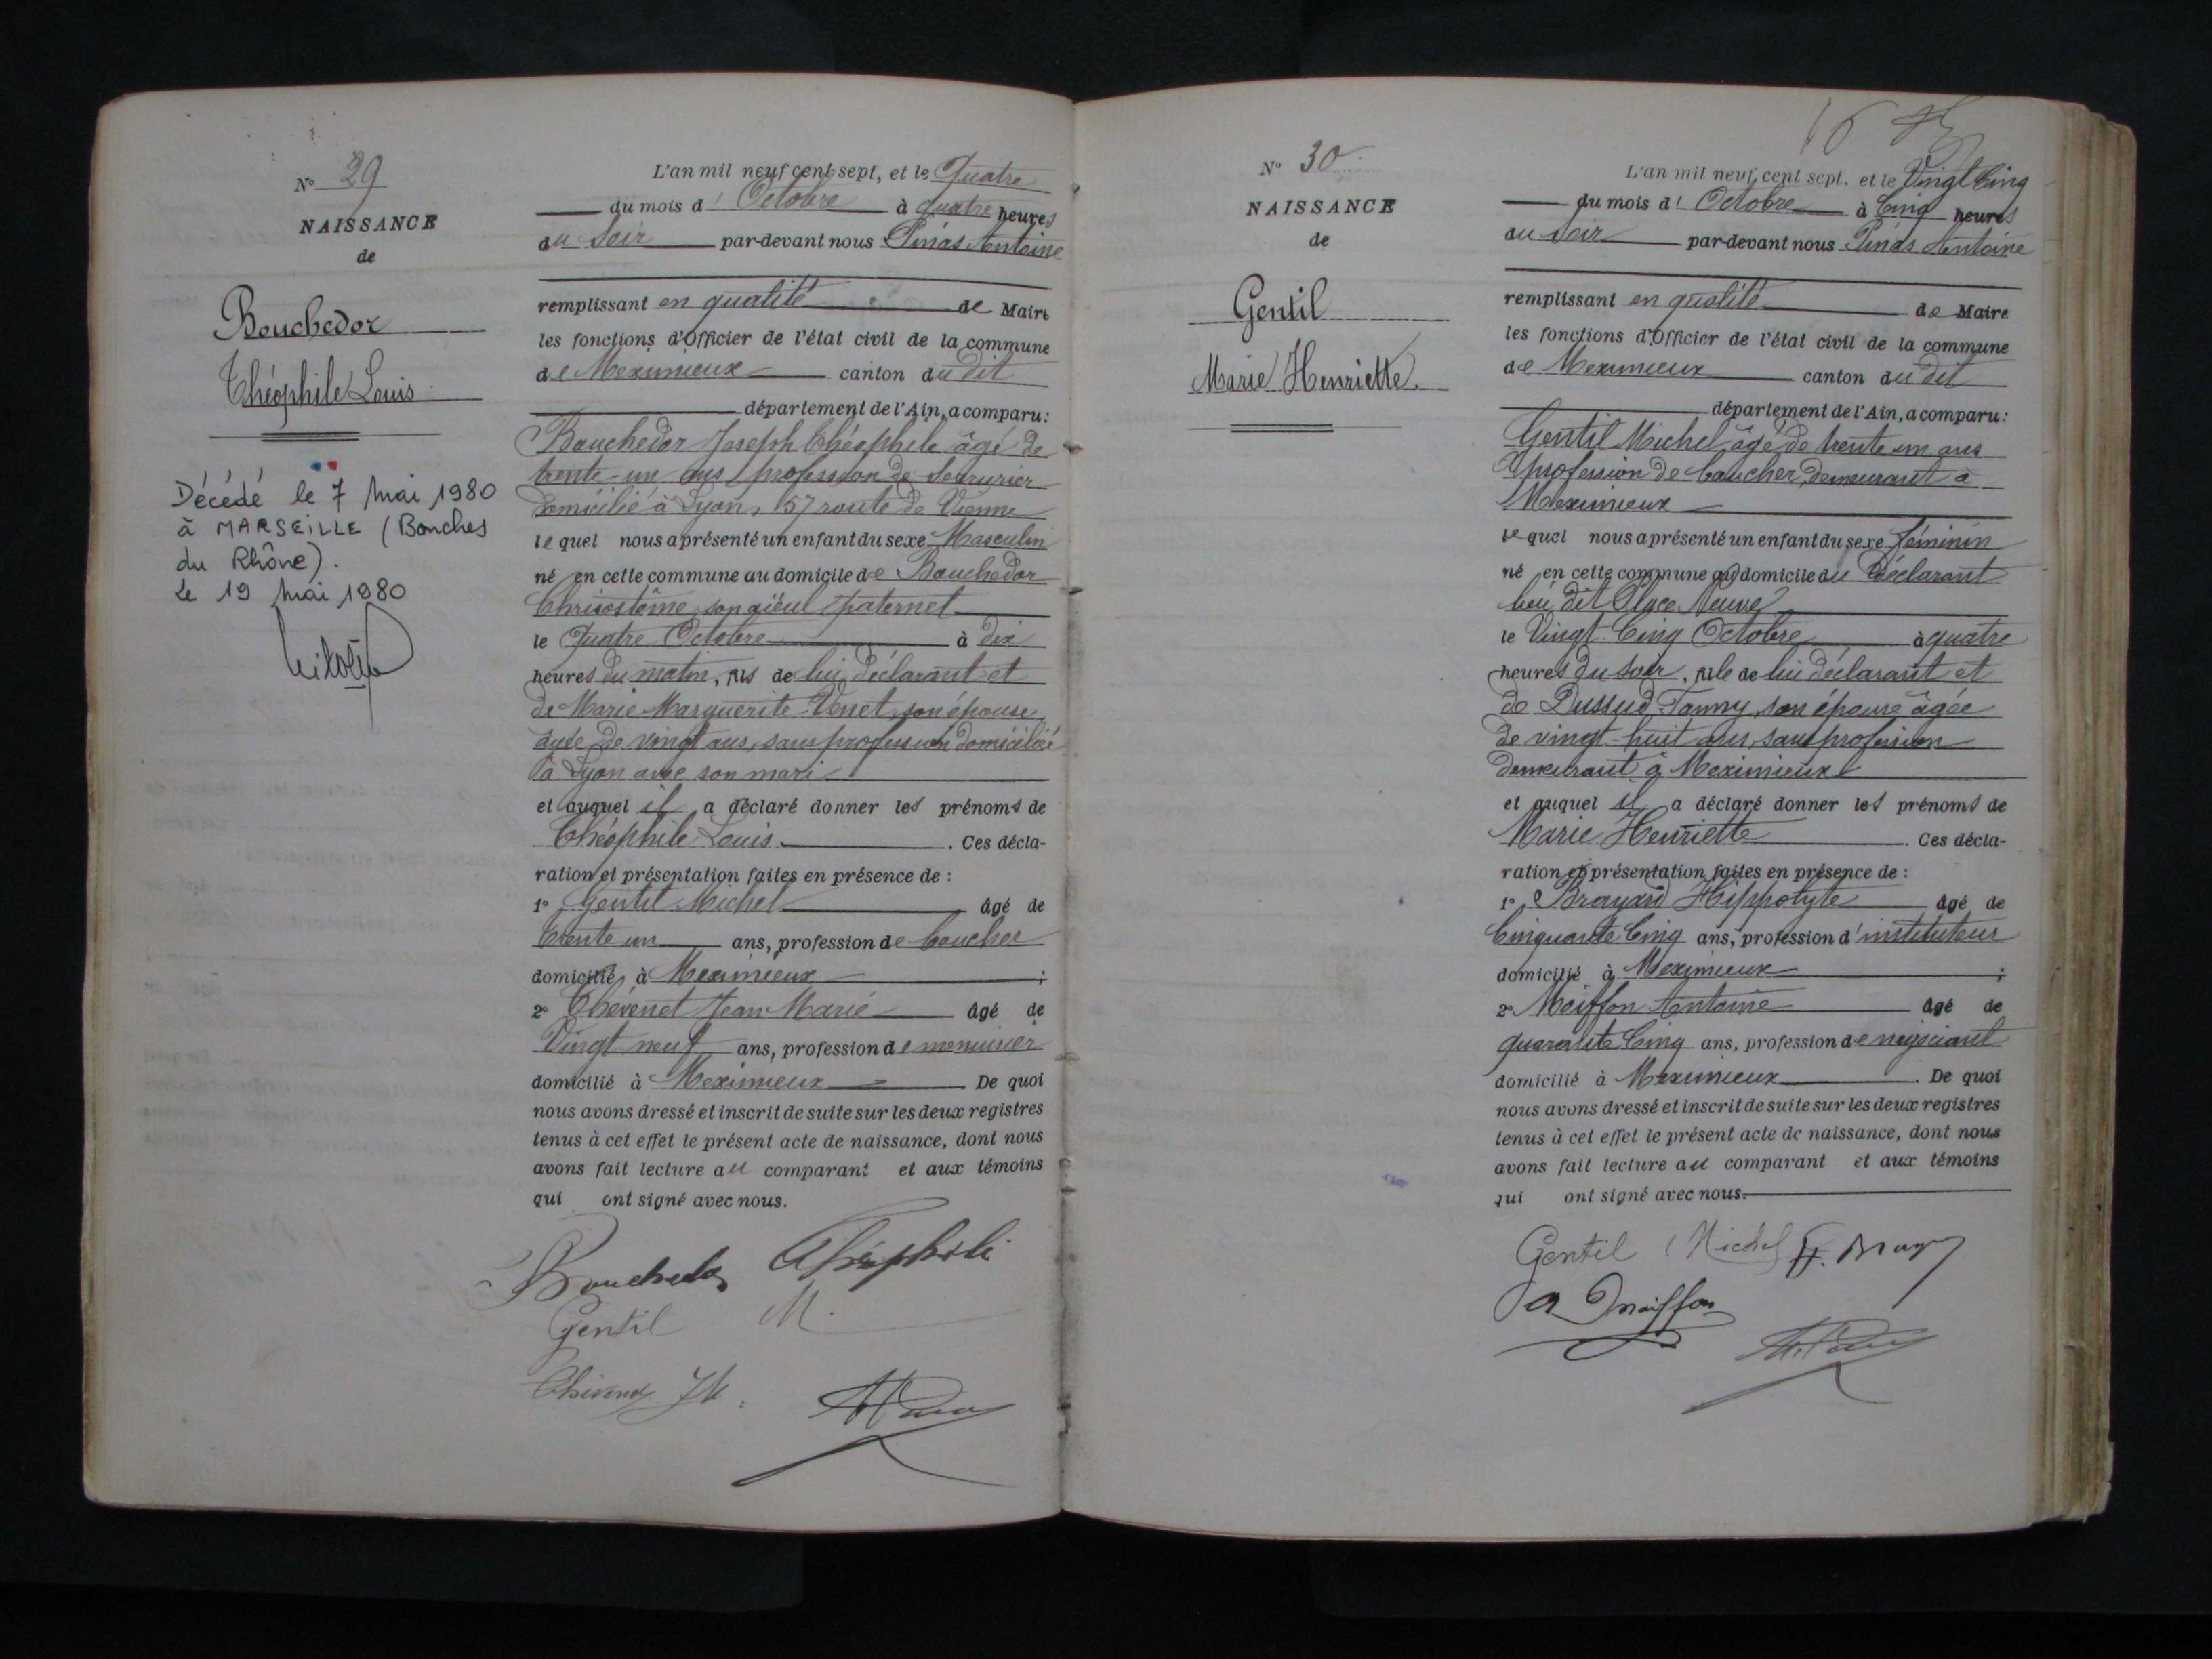 N° 29
NAISSANCE
de
Bouchedor
Théophile Louis
Décédé le 7 Mai 1980
à MARSEILLE (Bouches
du Rhône).
Le 19 Mai 1980
L'an mil neuf cent sept, et le Quatre
du mois d' Octobre à quatre heures
du Soir par-devant nous Pinás Antoine
remplissant en qualité de Maire
les fonctions d'Officier de l'état civil de la commune
de Meximieux canton du dit
département de l'Ain, a comparu :
Bouchedor Joseph Théophile âgé de
trente-un ans profession de Serrurier
domicilié à Lyon, 57 route de Vienne
lequel nous a présenté un enfant du sexe Masculin
né en cette commune au domicile de Bouchedor
Chrisostôme, son aïeul paternel
le Quatre Octobre à dix
heures du matin, fils de lui déclarant et
de Marie Marguerite Venet son épouse
âgée de vingt ans, sans profession domiciliée
à Lyon avec son mari
et auquel il a déclaré donner les prénoms de
Théophile Louis. Ces décla-
ration et présentation faites en présence de :
1° Gentil Michel âgé de
trente un ans, profession de boucher
domicilié à Meximieux ;
2° Thévenet Jean Marie âgé de
Vingt neuf ans, profession de menuisier
domicilié à Meximieux De quoi
nous avons dressé et inscrit de suite sur les deux registres
tenus à cet effet le présent acte de naissance, dont nous
avons fait lecture au comparant et aux témoins
qui ont signé avec nous.
Bouchedor Théophile
Gentil M.
N° 30
NAISSANCE
de
Gentil
Marie Henriette.
16
L'an mil neuf cent sept, et le Vingt Cinq
du mois d' Octobre à Cinq heures
du soir par-devant nous Pinás Antoine
remplissant en qualité de Maire
les fonctions d'Officier de l'état civil de la commune
de Meximieux canton du dit
département de l'Ain, a comparu :
Gentil Michel âgé de trente un ans
profession de boucher, demeurant à
Meximieux
lequel nous a présenté un enfant du sexe féminin
né en cette commune au domicile du Déclarant
lieu dit Place Neuve
le Vingt Cinq Octobre à quatre
heures du soir, fille de lui déclarant et
de Dussud Fanny, son épouse âgée
de vingt-huit ans, sans profession
demeurant à Meximieux
et auquel il a déclaré donner les prénoms de
Marie Henriette. Ces décla-
ration et présentation faites en présence de :
1° Brayard Hippolyte âgé de
Cinquante Cinq ans, profession d'instituteur
domicilié à Meximieux ;
2° Moiffon Antoine âgé de
quarante Cinq ans, profession de négociant
domicilié à Meximieux. De quoi
nous avons dressé et inscrit de suite sur les deux registres
tenus à cet effet le présent acte de naissance, dont nous
avons fait lecture au comparant et aux témoins
qui ont signé avec nous.
Gentil Michel